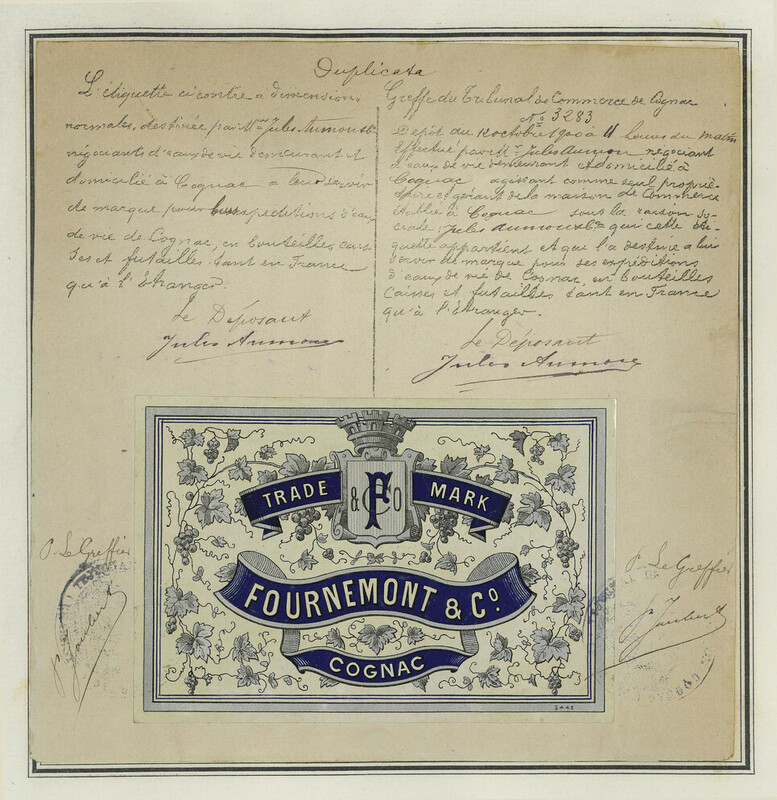 Duplicata
L'étiquette ci contre à dimensions
normales, destinée par Mr Jules Aumont
négociants d'eaux de vie demeurant et
domicilié à Cognac a leur servir
de marque pour expeditions d'eaux
de vie de Cognac, en bouteilles cais
ses et futailles tant en France
qu'à l'Etranger.
Le Déposant
Jules Aumont
Greffe du Tribunal de Commerce de Cognac
No 3283
Dépôt du 12 octobre 1900 à 11 heures du matin
Effectué par Mr Jules Aumont négociant
d'eaux de vie demeurant et domicilié à
Cognac agissant comme seul proprié-
taire et gérant de la maison de Commerce
établie à Cognac sous la raison so-
ciale: Jules Aumont & Cie que cette éti-
quette appartient et qu'il a destine a lui
servir de marque pour ses expéditions
d'eaux de vie de Cognac, en bouteilles
Caisses et futailles tant en France
qu'à l'étranger.
Le Déposant
Jules Aumont
TRADE MARK
F & Co
FOURNEMONT & Co.
COGNAC
P. Le Greffier
P. Le Greffier